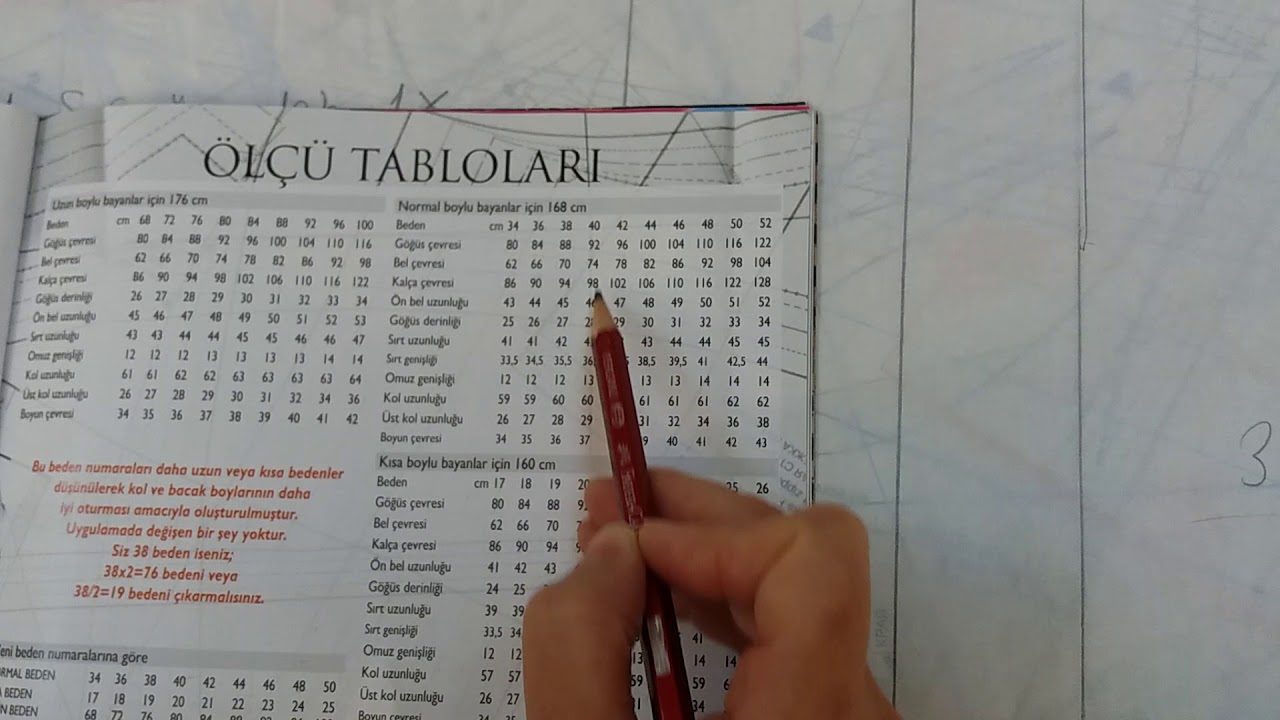 ÖLÇÜ TABLOLARI
Uzun boylu bayanlar için 176 cm
Beden cm 68 72 76 80 84 88 92 96 100
Göğüs çevresi 80 84 88 92 96 100 104 110 116
Bel çevresi 62 66 70 74 78 82 86 92 98
Kalça çevresi 86 90 94 98 102 106 110 116 122
Göğüs derinliği 26 27 28 29 30 31 32 33 34
Ön bel uzunluğu 45 46 47 48 49 50 51 52 53
Sırt uzunluğu 43 43 44 44 45 45 46 46 47
Omuz genişliği 12 12 12 13 13 13 13 14 14
Kol uzunluğu 61 61 62 62 63 63 63 63 64
Üst kol uzunluğu 26 27 28 29 30 31 32 34 36
Boyun çevresi 34 35 36 37 38 39 40 41 42
Bu beden numaraları daha uzun veya kısa bedenler
düşünülerek kol ve bacak boylarının daha
iyi oturması amacıyla oluşturulmuştur.
Uygulamada değişen bir şey yoktur.
Siz 38 beden iseniz;
38x2=76 bedeni veya
38/2=19 bedeni çıkarmalısınız.
numaralarına göre
BEDEN 34 36 38 40 42 44 46 48 50
BEDEN 17 18 19 20 21 22 23 24 25
BEDEN 68 72 76 80 84
Normal boylu bayanlar için 168 cm
Beden cm 34 36 38 40 42 44 46 48 50 52
Göğüs çevresi 80 84 88 92 96 100 104 110 116 122
Bel çevresi 62 66 70 74 78 82 86 92 98 104
Kalça çevresi 86 90 94 98 102 106 110 116 122 128
Ön bel uzunluğu 43 44 45 47 48 49 50 51 52
Göğüs derinliği 25 26 27 29 30 31 32 33 34
Sırt uzunluğu 41 41 42 43 44 44 45 45
Sırt genişliği 33,5 34,5 35,5 38,5 39,5 41 42,5 44
Omuz genişliği 12 12 12 13 13 13 14 14 14
Kol uzunluğu 59 59 60 60 61 61 61 62 62
Üst kol uzunluğu 26 27 28 29 31 32 34 36 38
Boyun çevresi 34 35 36 37 40 41 42 43
Kısa boylu bayanlar için 160 cm
Beden cm 17 18 19 20 25 26
Göğüs çevresi 80 84 88
Bel çevresi 62 66 70
Kalça çevresi 86 90 94
Ön bel uzunluğu 41 42 43
Göğüs derinliği 24 25
Sırt uzunluğu 39 39
Sırt genişliği 33,5 41
Omuz genişliği 12 12 13 14 14
Kol uzunluğu 57 57 59 59
Üst kol uzunluğu 26 27 34
Boyun çevresi
3